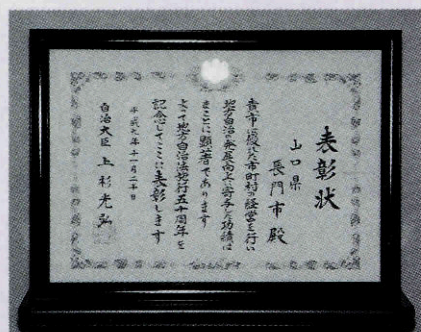 表彰状
山口県
長門市殿
貴市は優れた市町村の経営を行い
地方自治の発展向上に寄与した功績は
まことに顕著であります
よって地方自治法施行五十周年を
記念してここに表彰します
平成九年十一月二十日
自治大臣 上杉光弘